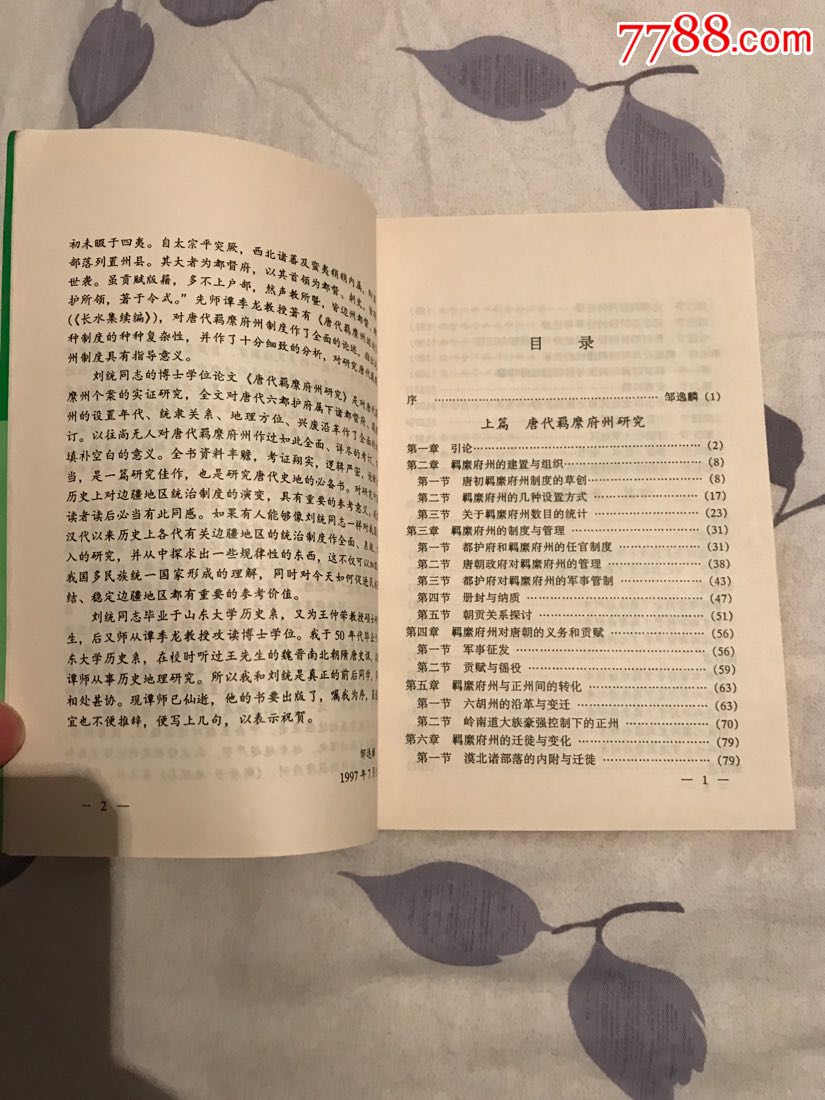 7788.com
初未暇于四夷。自太宗平突厥，西北诸蕃及蛮夷稍稍内属，即其
部落列置州县。其大者为都督府，以其首领为都督、刺史，皆得
世袭。虽贡赋版籍，多不上户部，然声教所暨，皆边州都督、都
护所领，著于令式。”先师谭季龙教授著有《唐代羁縻州述论》
(《长水集续编》)，对唐代羁縻府州制度作了全面的论述，指出
种制度的种种复杂性，并作了十分细致的分析，对研究唐代羁
州制度具有指导意义。
刘统同志的博士学位论文《唐代羁縻府州研究》是对唐代
縻州个案的实证研究，全文对唐代六都护府属下诸都督府、
州的设置年代、统隶关系、地理方位、兴废沿革作了全面的
订。以往尚无人对唐代羁縻府州作过如此全面、详尽的考订，
填补空白的意义。全书资料丰赡，考证翔实，逻辑严密，
当，是一篇研究佳作，也是研究唐代史地的必备书。对研究
历史上对边疆地区统治制度的演变，具有重要的参考意义，
读者读后必当有此同感。如果有人能够像刘统同志一样对我国
汉代以来历史上各代有关边疆地区的统治制度作全面、系统、
入的研究，并从中探求出一些规律性的东西，这不仅可以加
我国多民族统一国家形成的理解，同时对今天如何促进民
结、稳定边疆地区都有重要的参考价值。
刘统同志毕业于山东大学历史系，又为王仲荦教授硕士
生，后又师从谭季龙教授攻读博士学位。我于50年代毕业
东大学历史系，在校时听过王先生的魏晋南北朝隋唐史课，
谭师从事历史地理研究。所以我和刘统是真正的前后同学，
相处甚协。现谭师已仙逝，他的书要出版了，嘱我为序，
宜也不便推辞，便写上几句，以表示祝贺。
邹逸麟
1997年7月
— 2 —
目 录
序 …… 邹逸麟 (1)
上篇 唐代羁縻府州研究
第一章 引论 …… (2)
第二章 羁縻府州的建置与组织 …… (8)
第一节 唐初羁縻府州制度的草创 …… (8)
第二节 羁縻府州的几种设置方式 …… (17)
第三节 关于羁縻府州数目的统计 …… (23)
第三章 羁縻府州的制度与管理 …… (31)
第一节 都护府和羁縻府州的任官制度 …… (31)
第二节 唐朝政府对羁縻府州的管理 …… (38)
第三节 都护府对羁縻府州的军事管制 …… (43)
第四节 册封与纳质 …… (47)
第五节 朝贡关系探讨 …… (51)
第四章 羁縻府州对唐朝的义务和贡赋 …… (56)
第一节 军事征发 …… (56)
第二节 贡赋与徭役 …… (59)
第五章 羁縻府州与正州间的转化 …… (63)
第一节 六胡州的沿革与变迁 …… (63)
第二节 岭南道大族豪强控制下的正州 …… (70)
第六章 羁縻府州的迁徙与变化 …… (79)
第一节 漠北诸部落的内附与迁徙 …… (79)
— 1 —